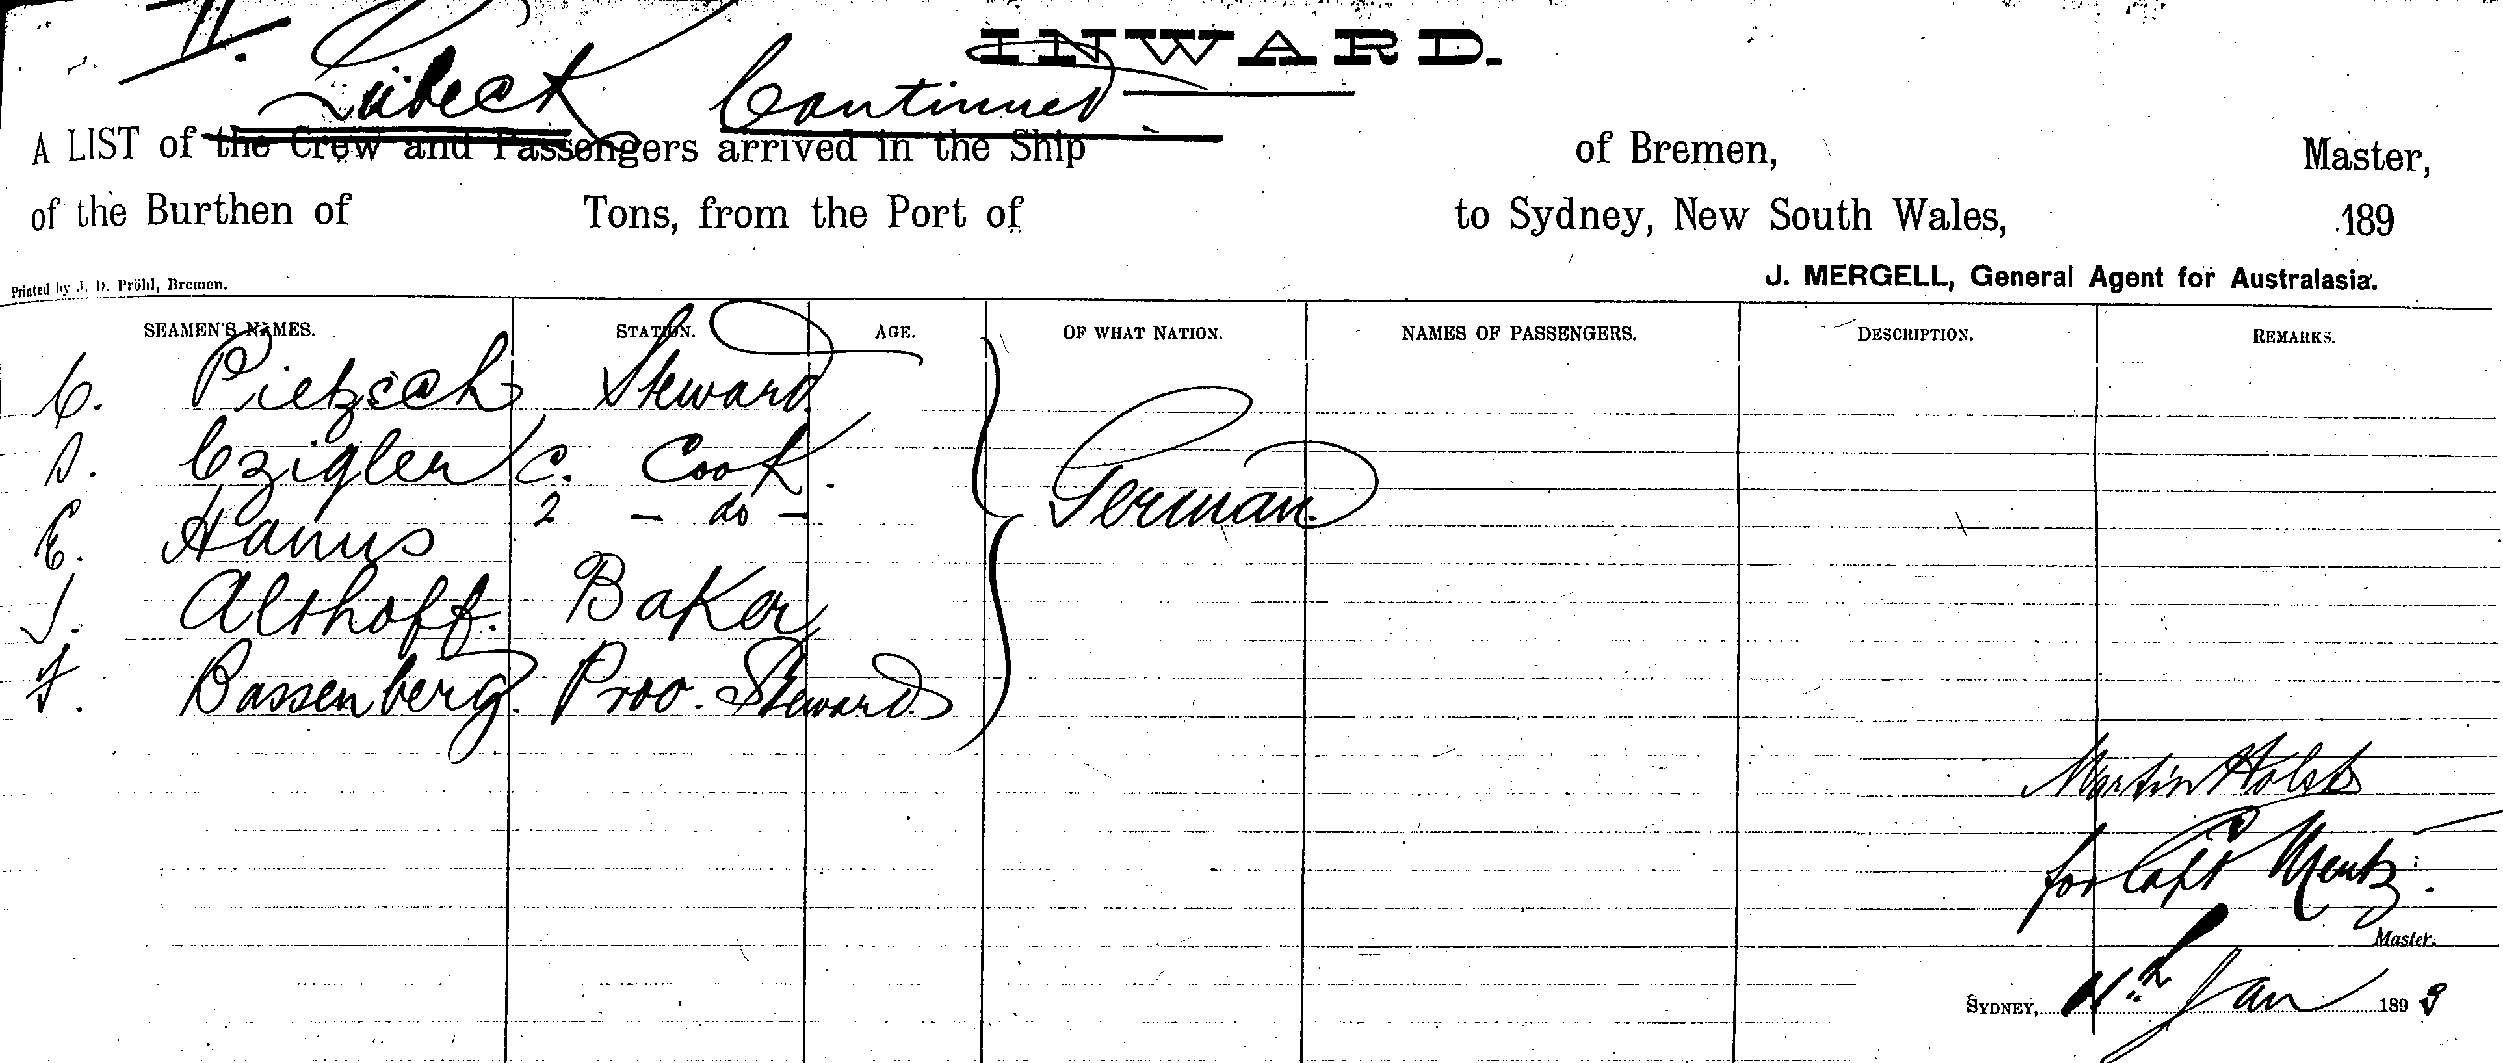 II.
INWARD.
Lübeck Continued
A LIST of the Crew and Passengers arrived in the Ship of Bremen, Master,
of the Burthen of Tons, from the Port of to Sydney, New South Wales, 189
J. MERGELL, General Agent for Australasia.
Printed by J. D. Pröhl, Bremen.
SEAMEN'S NAMES. STATION. AGE. OF WHAT NATION. NAMES OF PASSENGERS. DESCRIPTION. REMARKS.
C. Pietzsch Steward
S. Czigler C. Cook.
E. Hanus 2 - do - German.
J. Althoff. Baker
F. Bassenberg. Prov. Steward
Martin Holst
for Capt Mentz.
Master.
SYDNEY, 11th Jan 1893